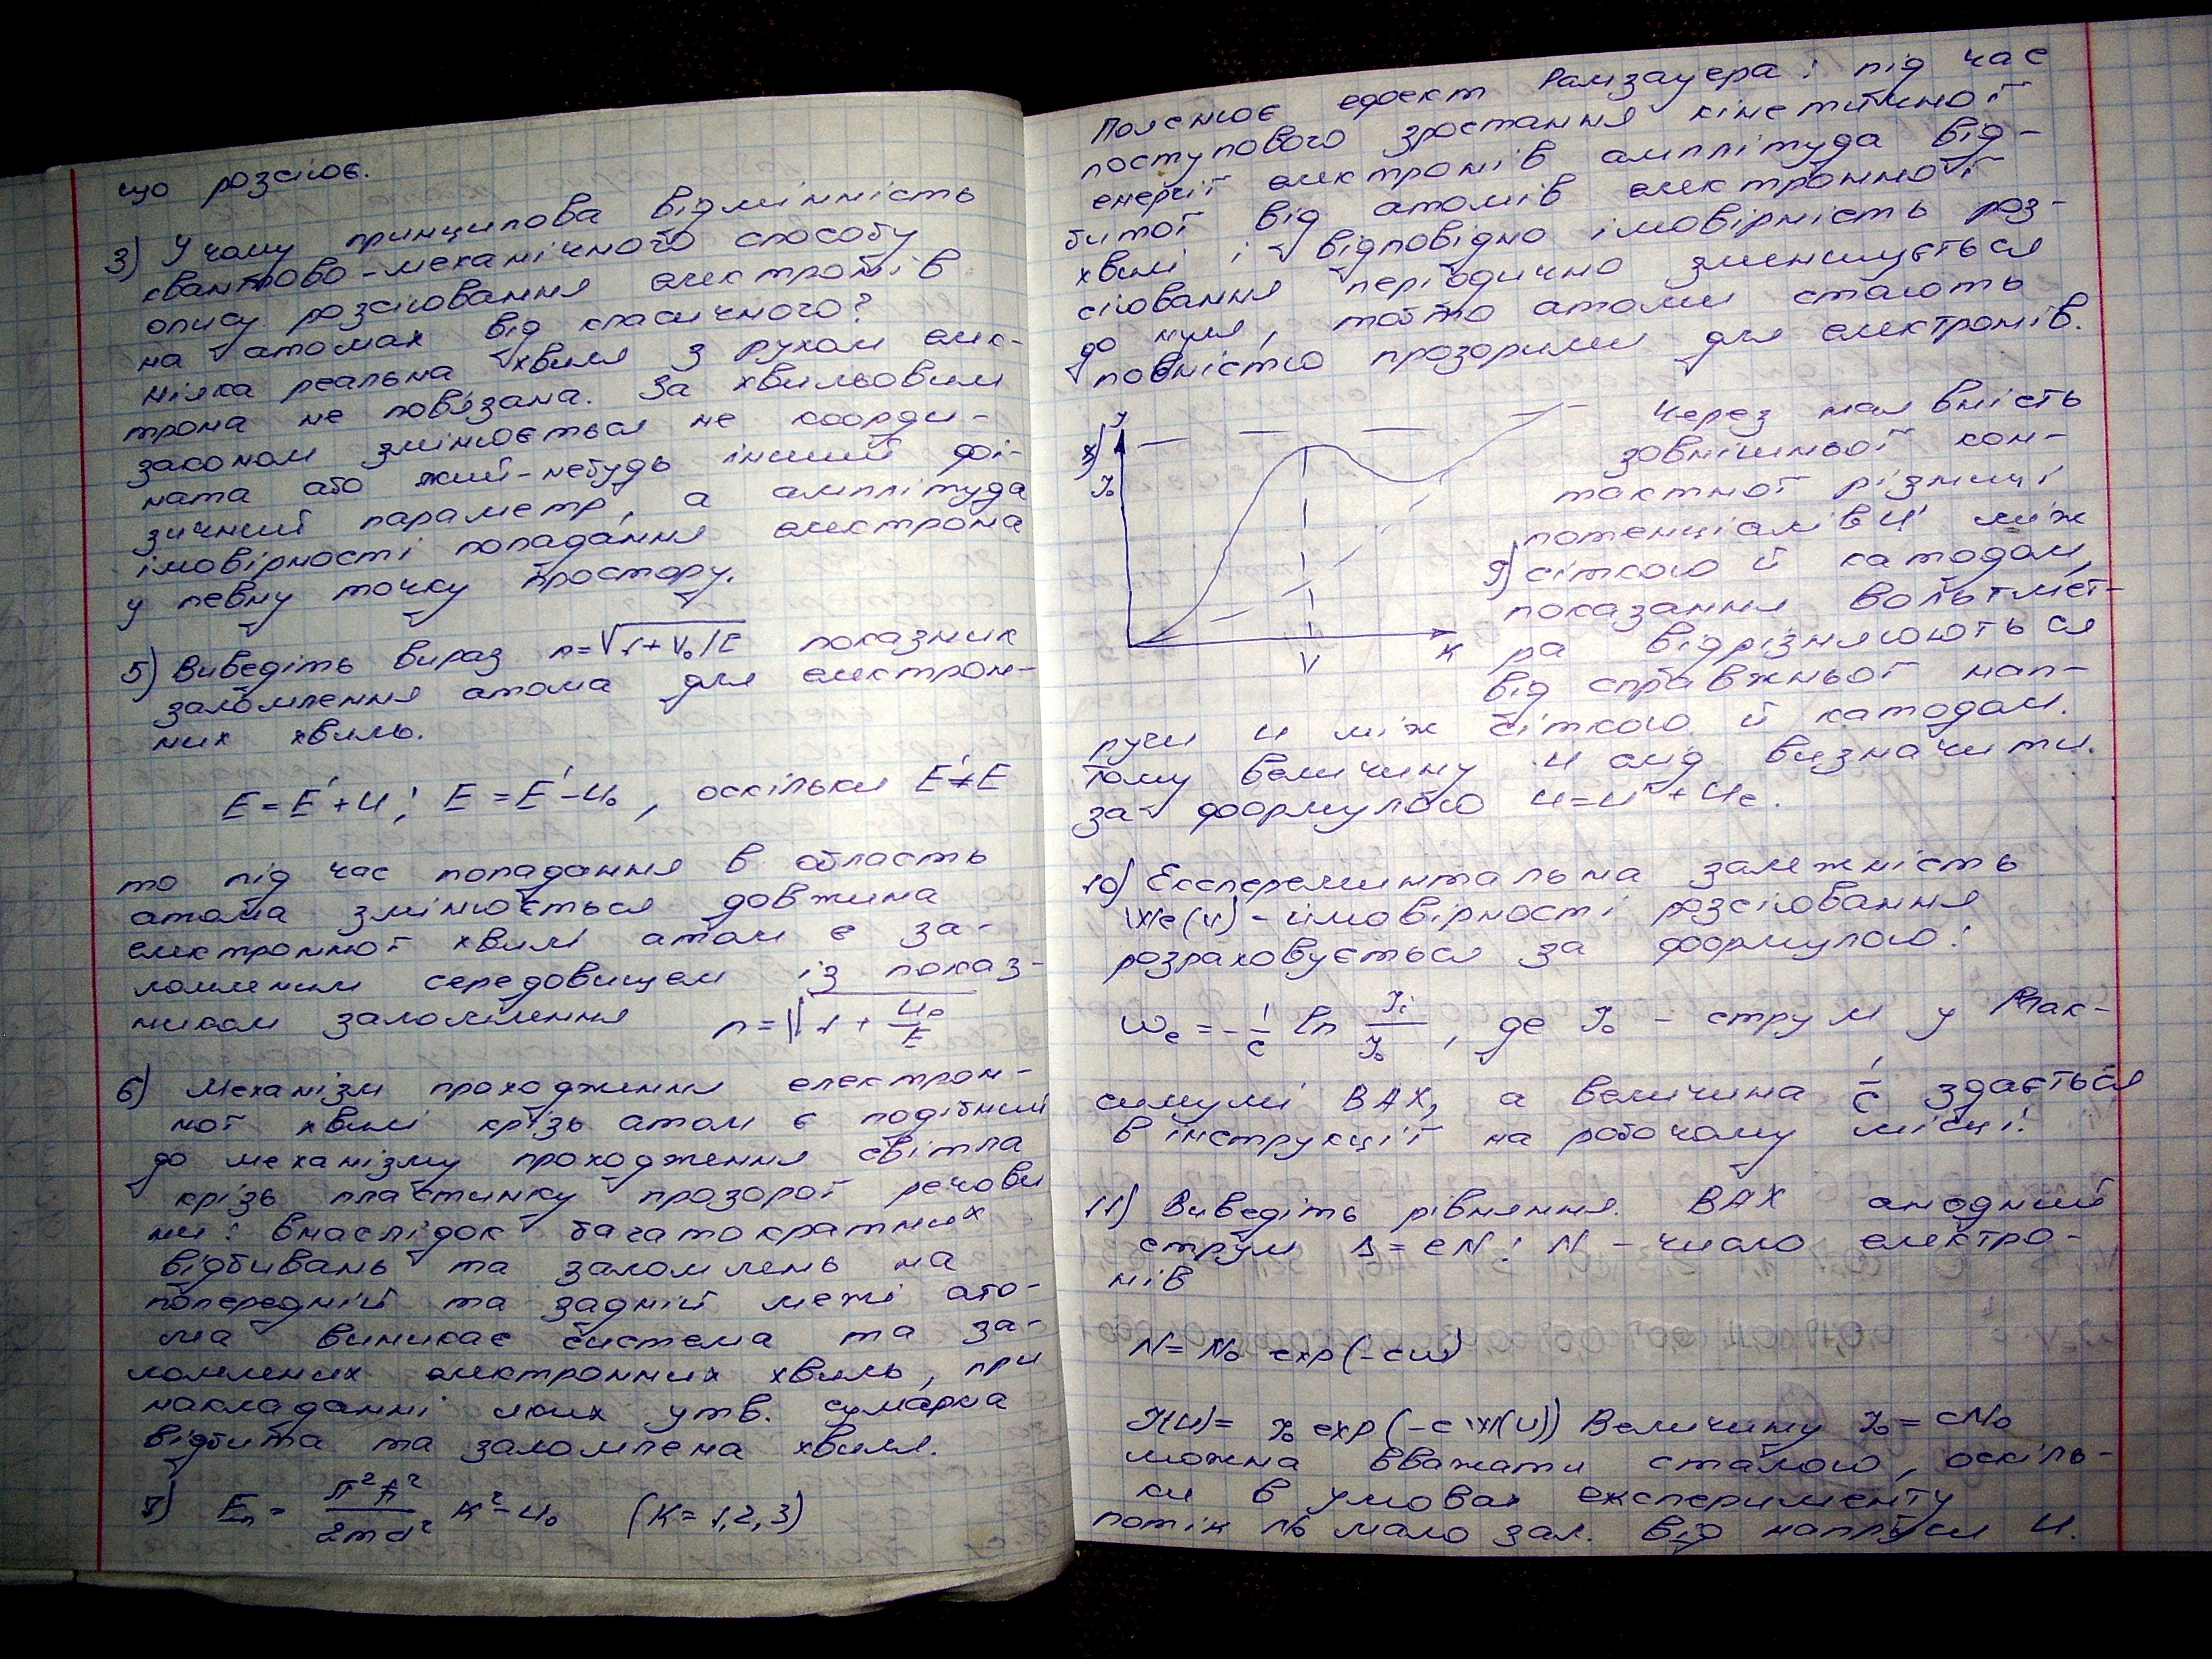 що розсіює.
3) У чому принципова відмінність
квантово-механічного способу
опису розсіювання електронів
на атомах від класичного?
ніяка реальна хвиля з рухом елек-
трона не пов'язана. За хвильовим
законом змінюється не коорди-
ната або який-небудь інший фі-
зичний параметр, а амплітуда
імовірності попадання електрона
у певну точку простору.
5) Виведіть вираз n=√1+V₀/E показник
заломлення атома для електрон-
них хвиль.
E=E'+U; E=E'-U₀, оскільки E'≠E
то під час попадання в область
атома змінюється довжина
електронної хвилі атом є за-
ломленим середовищем із показ-
ником заломлення n=√1+U₀/E
6) Механізм проходження електрон-
ної хвилі крізь атом є подібний
до механізму проходження світла
крізь пластинку прозорої речови
ни: внаслідок багатократних
відбивань та заломлень на
попередній та задній межі ато-
ма виникає система та за-
ломлених електронних хвиль, при
накладанні яких утв. сумарна
відбита та заломлена хвиля.
7) Eₙ = π²ħ²/2md² K²-U₀ (K=1,2,3)
Пояснює ефект Рамзауера: під час
поступового зростання кінетичної
енергії електронів амплітуда від-
битої від атомів електронної
хвилі і відповідно імовірність роз-
сіювання періодично зменшується
до нуля, тобто атоми стають
повністю прозорими для електронів.
J
8)
J₀
K
V
Через наявність
зовнішньої кон-
тактної різниці
потенціалів U' між
9) сіткою й катодом,
показання вольтмет-
ра відрізняються
від справжньої нап-
руги U між сіткою й катодом.
тому величину U слід визначити
за формулою U=U'+Uc.
10) Експереминтальна залежність
We(U)-імовірності розсіювання
розраховується за формулою:
wₑ=-1/c ln Ji/J₀, де J₀ - струм у мак-
симумі ВАХ, а величина 1/c здається
в інструкції на робочому місці!
11) Виведіть рівняння. ВАХ анодний
струм I=eN: N - число електро-
нів
N=N₀ exp(-cw)
J(U)= J₀ exp(-cW(U)) Величину J₀=eN₀
можна вважати сталою, оскіль-
ки в умовах експерименту
потік N₀ мало зал. від напруги U.